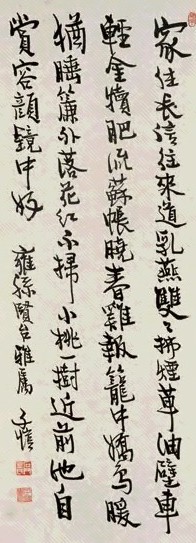 家住長信往來道乳燕雙〻拂煙草油壁車
輕金犢肥流蘇帳曉春雞報籠中嬌鳥暖
猶睡簾外落花紅不掃小桃一樹近前池自
賞容顏鏡中好 雍孫賢台雅屬